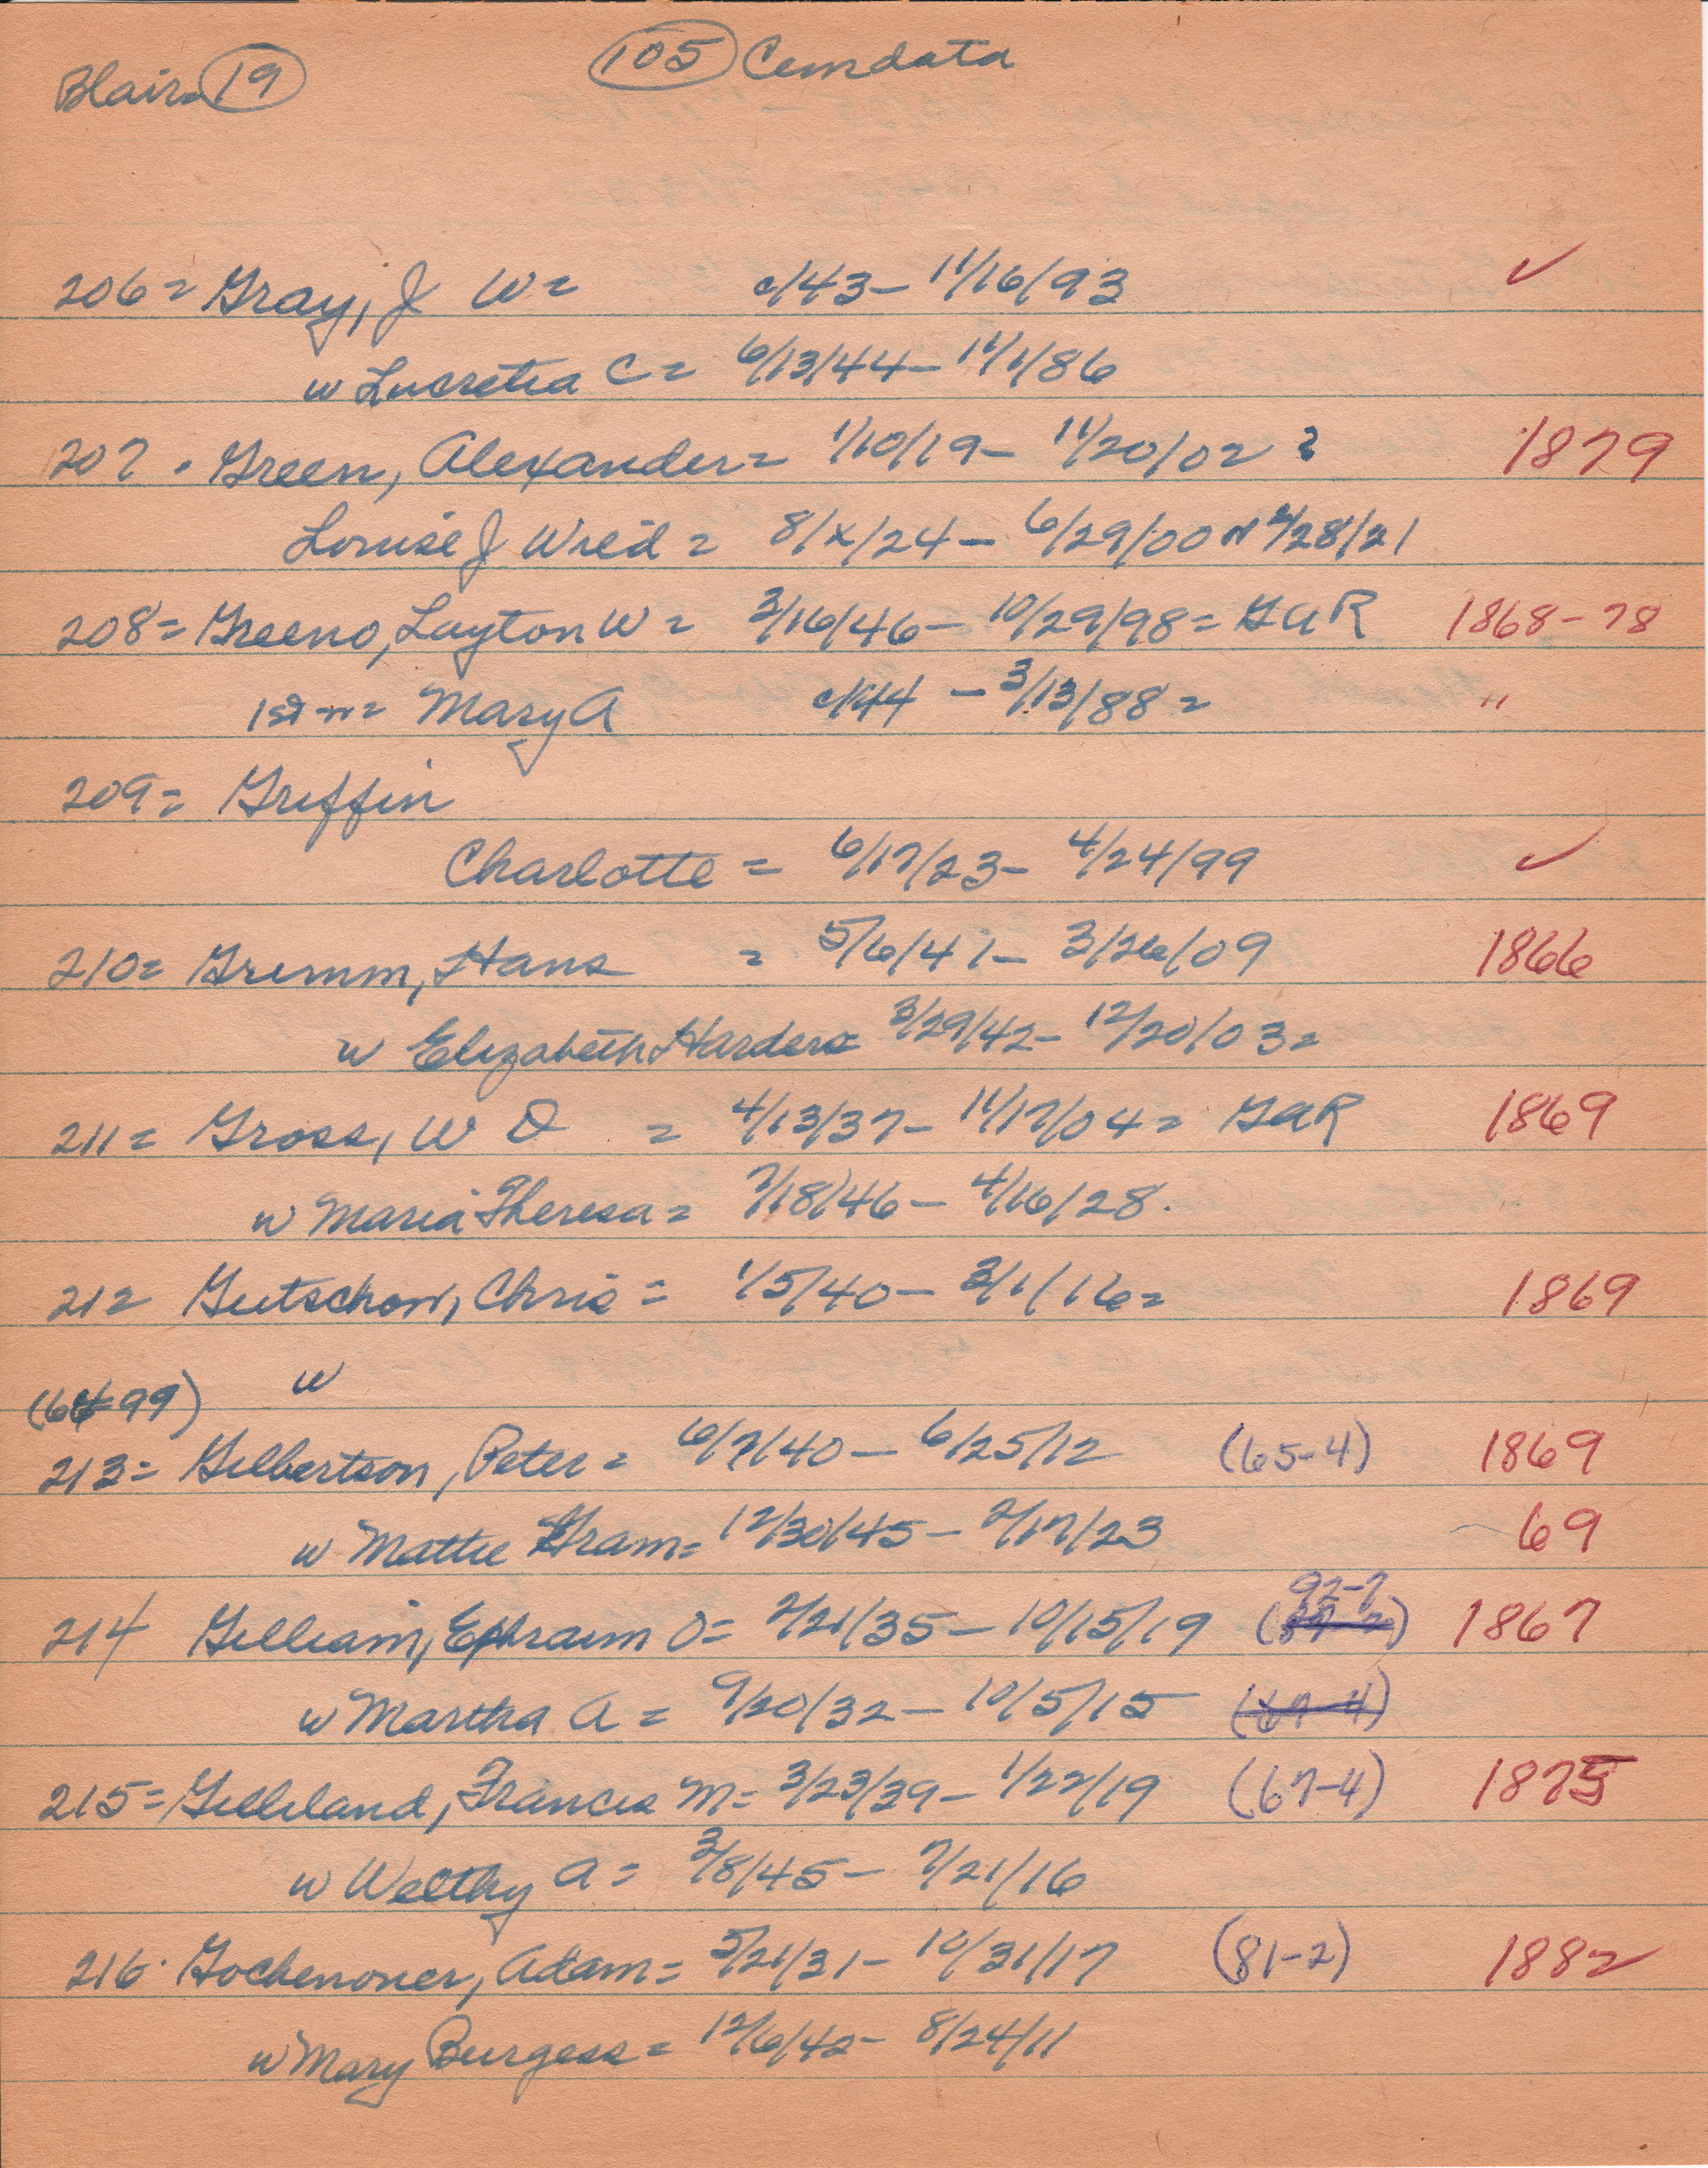 Blair= 19 105 Cemdata
206= Gray, J W= c/43- 11/16/93 ✓
w Lucretia C= 6/13/44- 11/1/86
207. Green, Alexander= 1/10/19- 11/20/02 ? 1879
Louise J Wied= 8/x/24- 6/29/00 /28/21
208= Greeno, Layton W= 3/16/46- 10/29/98= GAR 1868-78
1st w= Mary A c/44 - 3/13/88= "
209= Griffin
Charlotte= 6/17/23- 4/24/99 ✓
210= Grimm, Hans = 5/6/41- 3/26/09 1866
w Elizabeth Harders= 3/29/42- 12/20/03=
211= Gross, W O = 4/13/37- 11/17/04= GAR 1869
w Maria Theresa= 7/18/46- 4/16/28.
212 Gutschow, Chris= 1/5/40- 3/1/16= 1869
w
(64=99)
213= Gilbertson, Peter= 6/7/40- 6/25/12 (65-4) 1869
w Mattie Gram= 12/30/45- 2/17/23 69
92-7
214 Gilliam, Ephraim O= 2/21/35- 10/15/19 1867
w Martha A= 9/20/32- 10/5/15 (67-4)
215= Gilliland, Francis M= 3/23/39- 1/22/19 (67-4) 1875
w Welthy A= 3/8/45- 7/21/16
216. Gochenouer, Adam= 5/21/31- 10/31/17 (81-2) 1882
w Mary Burgess= 12/6/42- 8/24/11